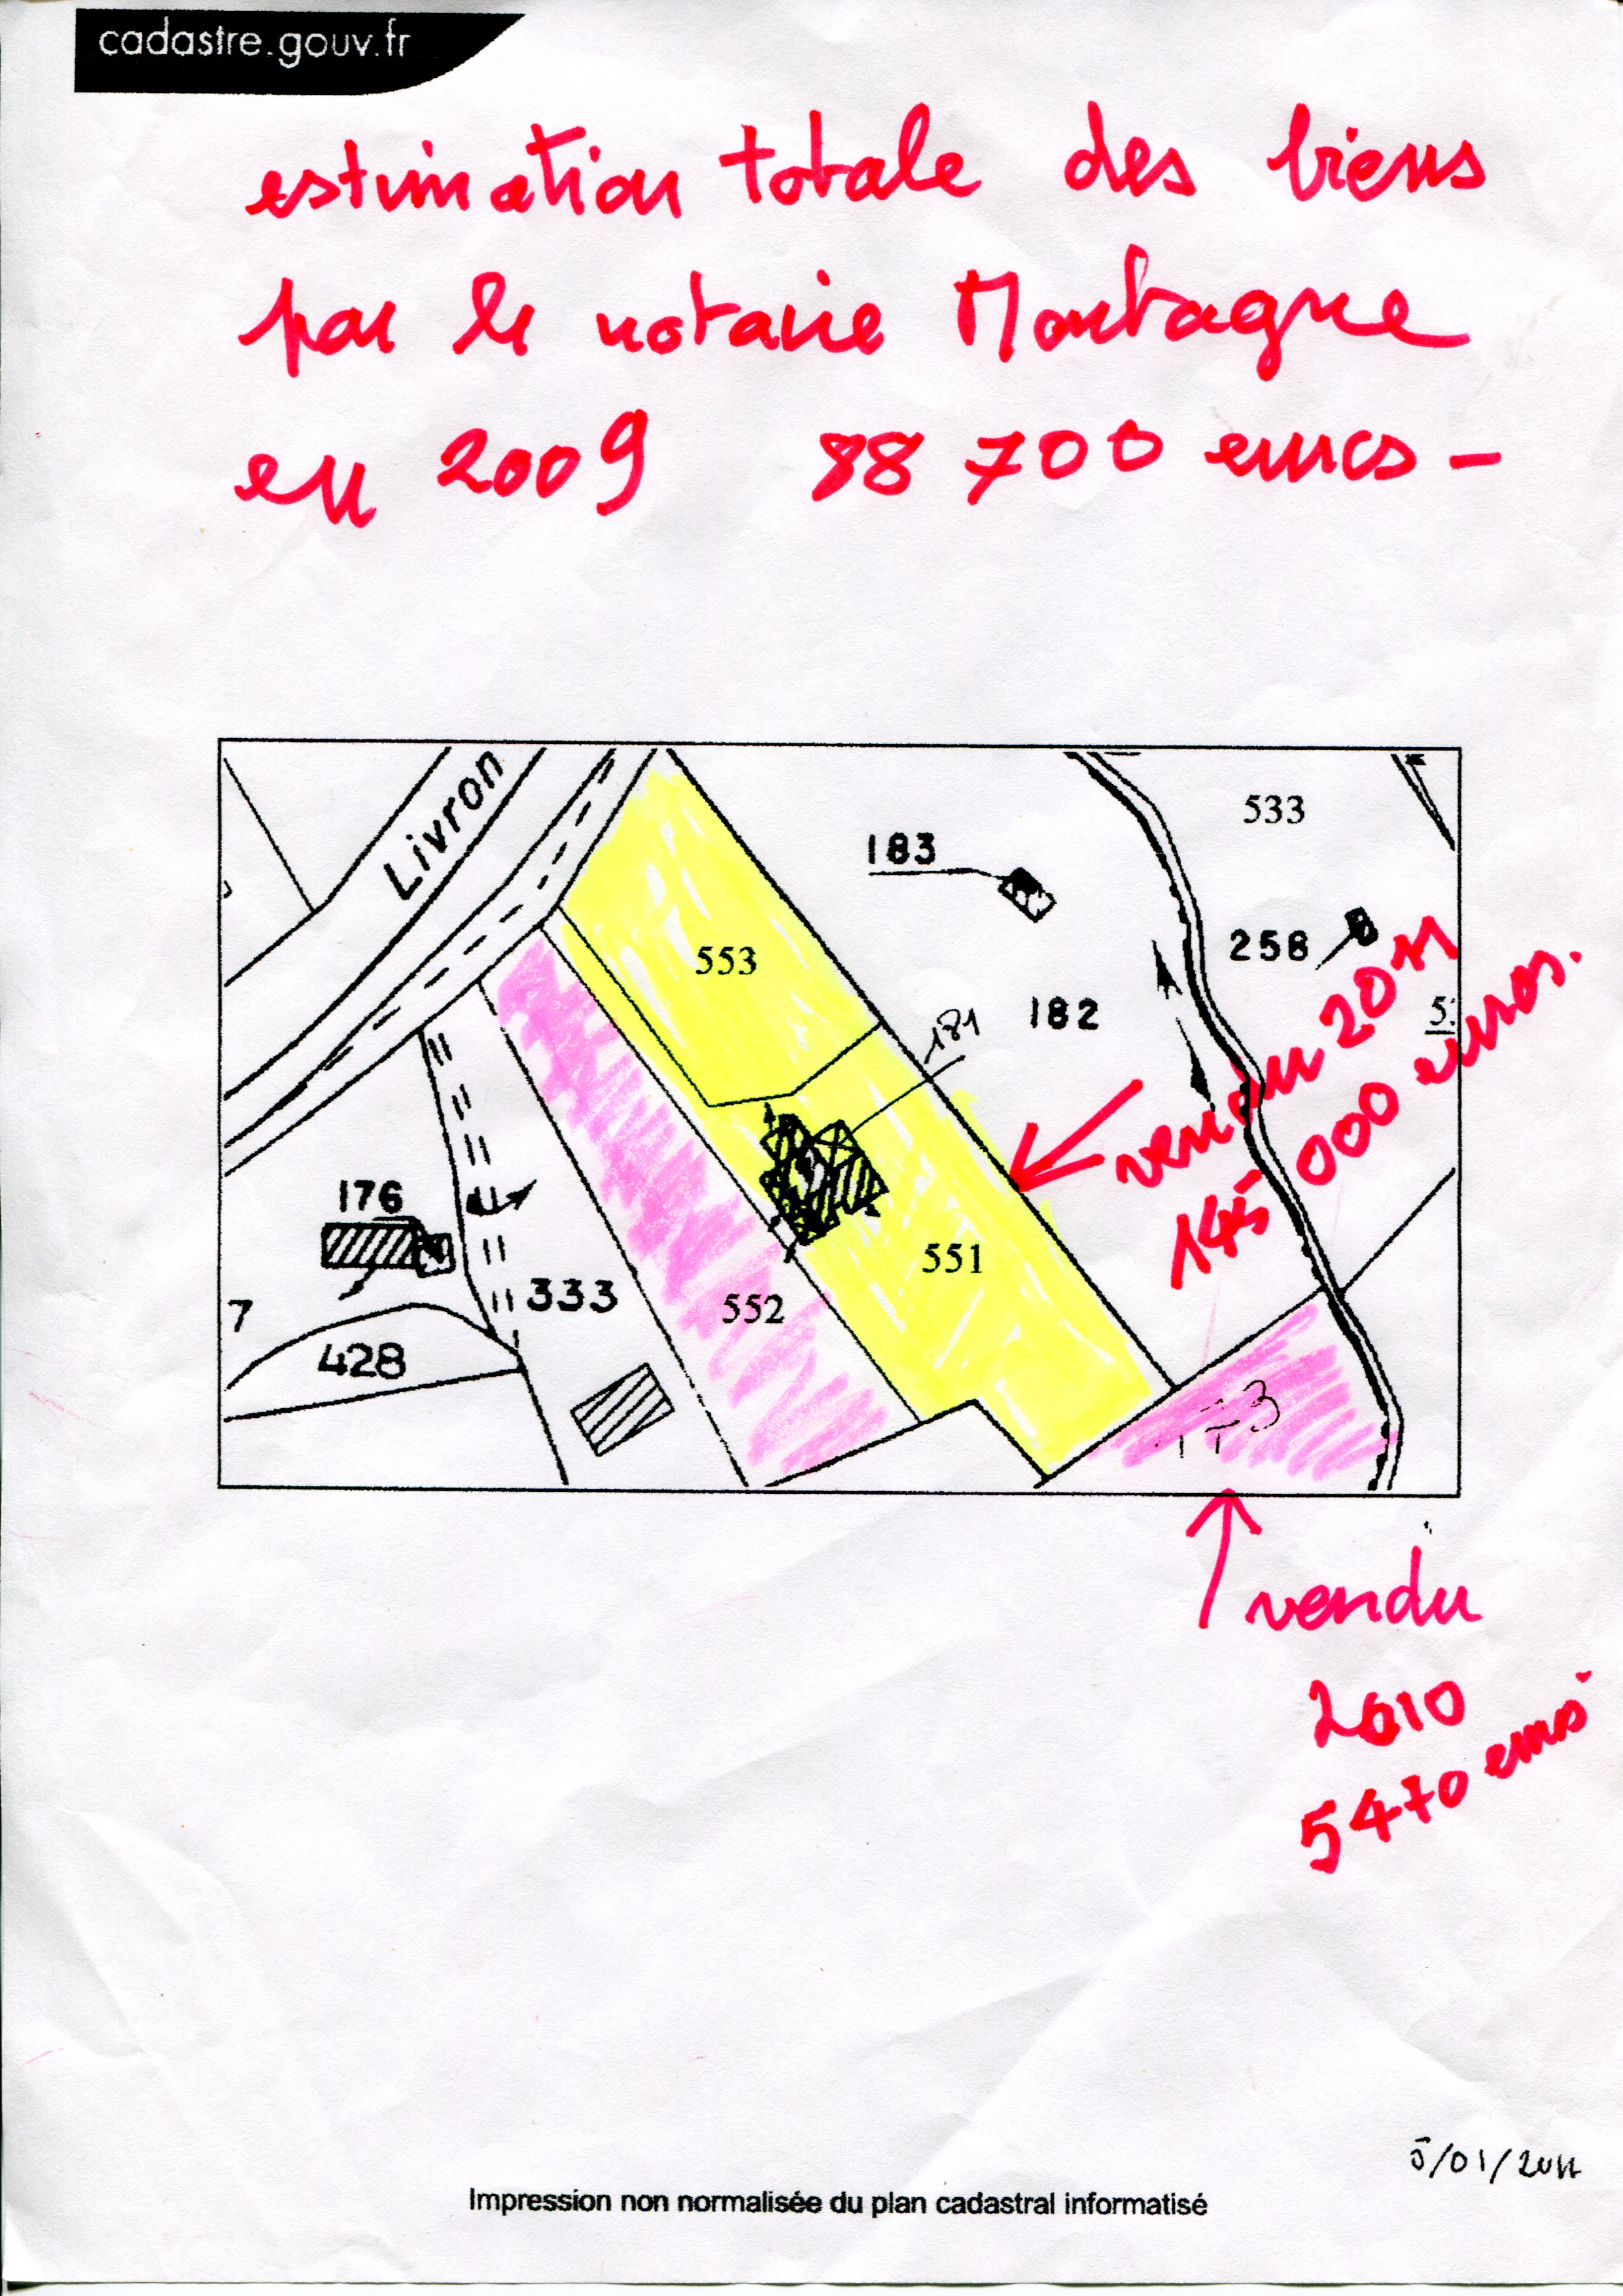 cadastre.gouv.fr
estimation totale des biens
par le notaire Montagne
en 2009 88 700 euros -
Livron
533
183
258
553
181
182
vendu 2011
145 000 euros.
176
551
333
552
7
428
vendu
2010
5470 euros
Impression non normalisée du plan cadastral informatisé